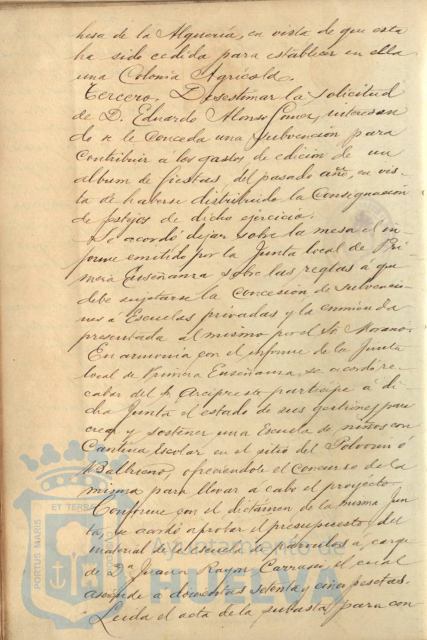 hesa de la Alquería, en vista de que esta
ha sido cedida para establecer en ella
una Colonia Agrícola.
Tercero. Desestimar la solicitud
de D. Eduardo Alonso Gómez, interesan
do se le conceda una subvención para
contribuir a los gastos de edición de un
album de fiestas del pasado año, en vis-
ta de haberse distribuido la Consignación
de festejos de dicho ejercicio.
Se acordó dejar sobre la mesa el in
forme emitido por la Junta local de Pri
mera Enseñanza sobre las reglas á que
debe sujetarse la concesión de subvencio
nes á Escuelas privadas y la enmienda
presentada al mismo por el Sr. Moreno.
En armonía con el informe de la Junta
local de Primera Enseñanza, se acordó re
cabar del Sr. Arcipreste participe á di
cha Junta el estado de sus gestiones para
crear y sostener una Escuela de niños con
Cantina Escolar en el sitio del Polvorin ó
ofreciendole el Concurso de la
misma para llevar á cabo el proyecto.
Conforme con el dictámen de la misma Jun
ta, se acordó aprobar el presupuesto del
material de la escuela de párvulos á cargo
de Dª Juana Rayor Carrasco, el cual
asciende a doscientas setenta y cinco pesetas.
Leida el acta de la subasta para con
PORTUS MARIS ET TERRAE CUSTODIA
Ayuntamiento de
HUELVA